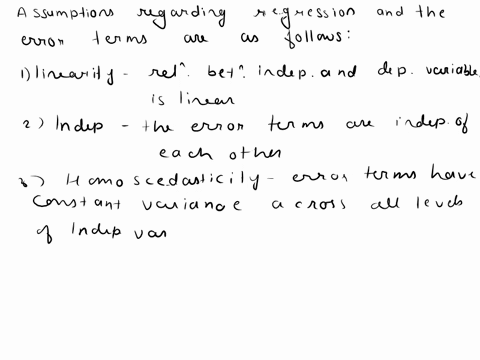 Assumptions regarding regression and the
error terms are as follows:
1) linearity - relⁿ. betⁿ. indep. and dep. variable
is linear
2) Indep - the error terms are indep. of
each other
3) Homoscedasticily - error terms have
constant variance across all levels
of Indep var